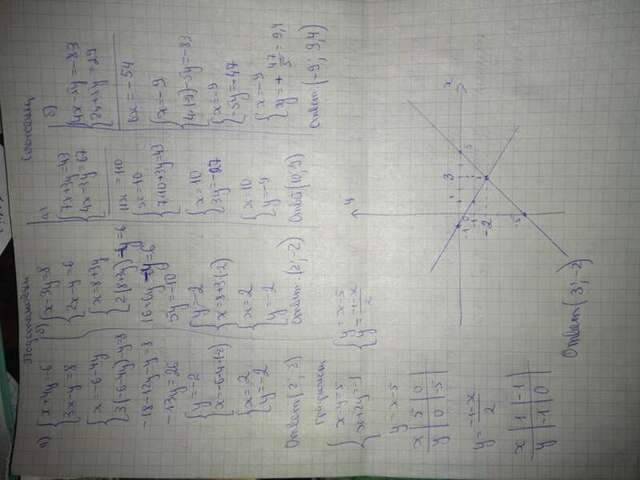 Подстановки
а) { x+4y=-6
3x-y=8
{ x=-6-4y
3(-6-4y)-y=8
-18-12y-y=8
-13y=26
{ y=-2
{ x=2
y=-2
Ответ (2;-2)
б) { x-3y=8
2x-y=6
{ x=8+3y
2(8+3y)-y=6
16+6y-y=6
5y=-10
{ y=-2
x=8+3(-2)
{ x=2
y=-2
Ответ (2;-2)
Сложения
а) { 7x+3y=43
4x-3y=67
11x=110
x=10
{ 7·10+3y=43
{ x=10
3y=-27
{ x=10
y=-9
б) { 4x-5y=-83
2x+5y=29
6x=-54
{ x=-9
4(-9)-5y=-83
{ x=-9
-5y=-47
{ x=-9
y=+47/5=9,4
Ответ (-9; 9,4)
График
{ x-y=5
x+2y=-1
{ y=x-5
y=-1-x/2
y=x-5
x 5 0
y 0 -5
y=-1-x/2
x 1 -1
y -1 0
y
x
3
-2
Ответ (3;-2)